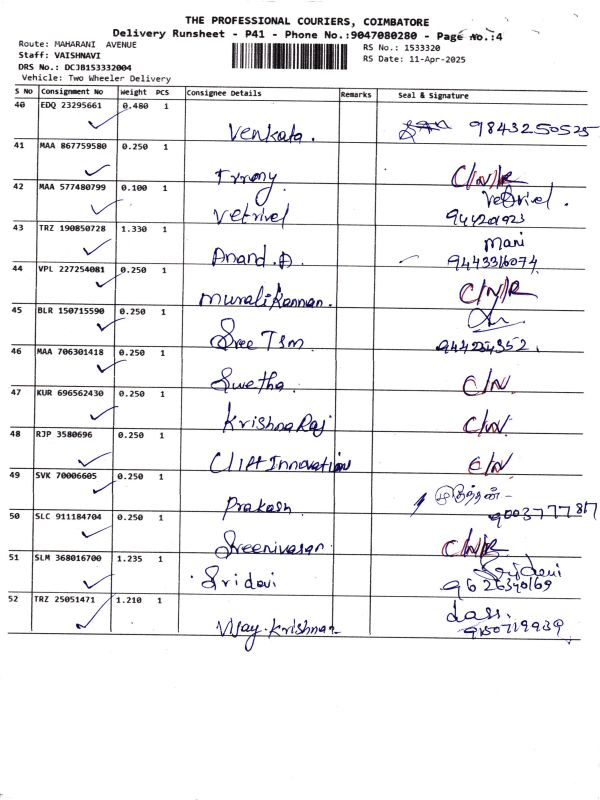 THE PROFESSIONAL COURIERS, COIMBATORE
Delivery Runsheet - P41 - Phone No.:9047080280 - Page No.:4
Route: MAHARANI AVENUE
Staff: VAISHNAVI
DRS No.: DCJB153332004
Vehicle: Two Wheeler Delivery
RS No.: 1533320
RS Date: 11-Apr-2025
S No Consignment No Weight PCS Consignee Details Remarks Seal & Signature
40 EDQ 23295661 0.480 1
Venkata. 9843250525
41 MAA 867759580 0.250 1
C/N/R
42 MAA 577480799 0.100 1
Vetrivel Vetrivel.
43 TRZ 190850728 1.330 1
Anand.A Mani
9443316074
44 VPL 227254081 0.250 1
Muralikannan. C/N/R
45 BLR 150715590 0.250 1
Sree TSM
46 MAA 706301418 0.250 1
Swetha C/N.
47 KUR 696562430 0.250 1
Krishna Raj C/N.
48 RJP 3580696 0.250 1
Clift Innovation C/N
49 SVK 70006605 0.250 1
Prakash
50 SLC 911184704 0.250 1
Sreenivasan C/N/R
51 SLM 368016700 1.235 1
Sridevi Sridevi
9626340169
52 TRZ 25051471 1.210 1
Vijay.Krishnan dass.
9150719939